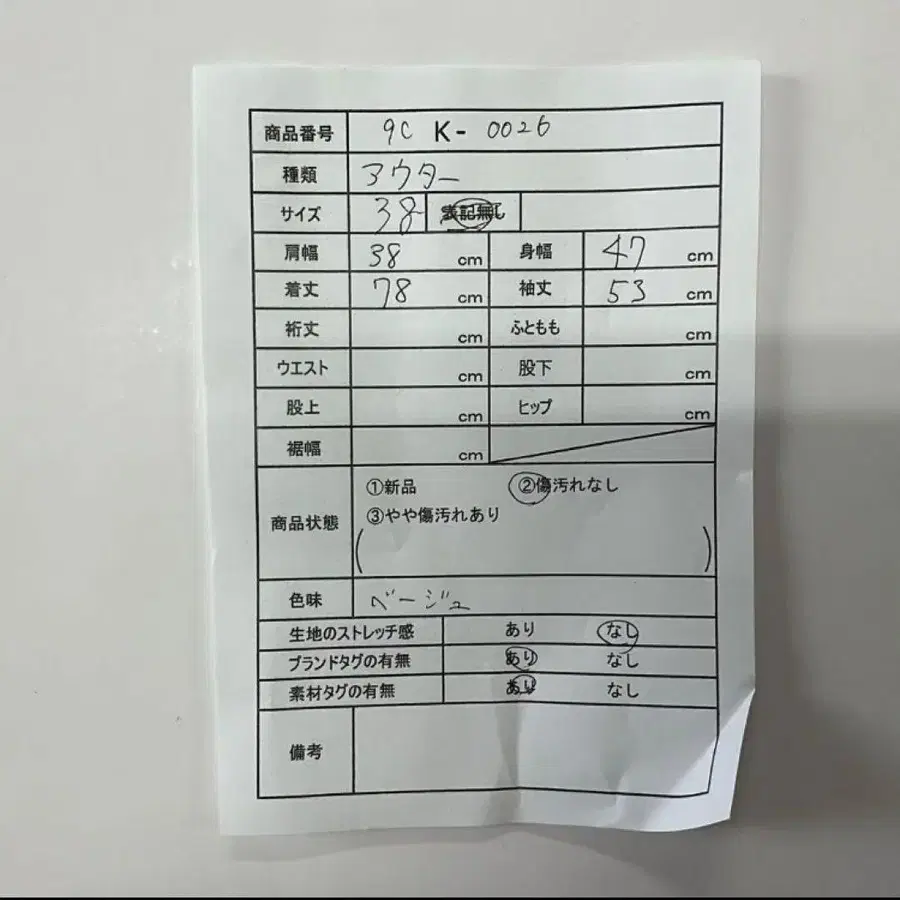 商品番号 9C K- 0026
種類 アウター
サイズ 38 表記無し
肩幅 38 cm 身幅 47 cm
着丈 78 cm 袖丈 53 cm
裄丈 cm ふともも cm
ウエスト cm 股下 cm
股上 cm ヒップ cm
裾幅 cm
商品状態 ①新品 ②傷汚れなし
③やや傷汚れあり
( )
色味 ベージュ
生地のストレッチ感 あり なし
ブランドタグの有無 あり なし
素材タグの有無 あり なし
備考